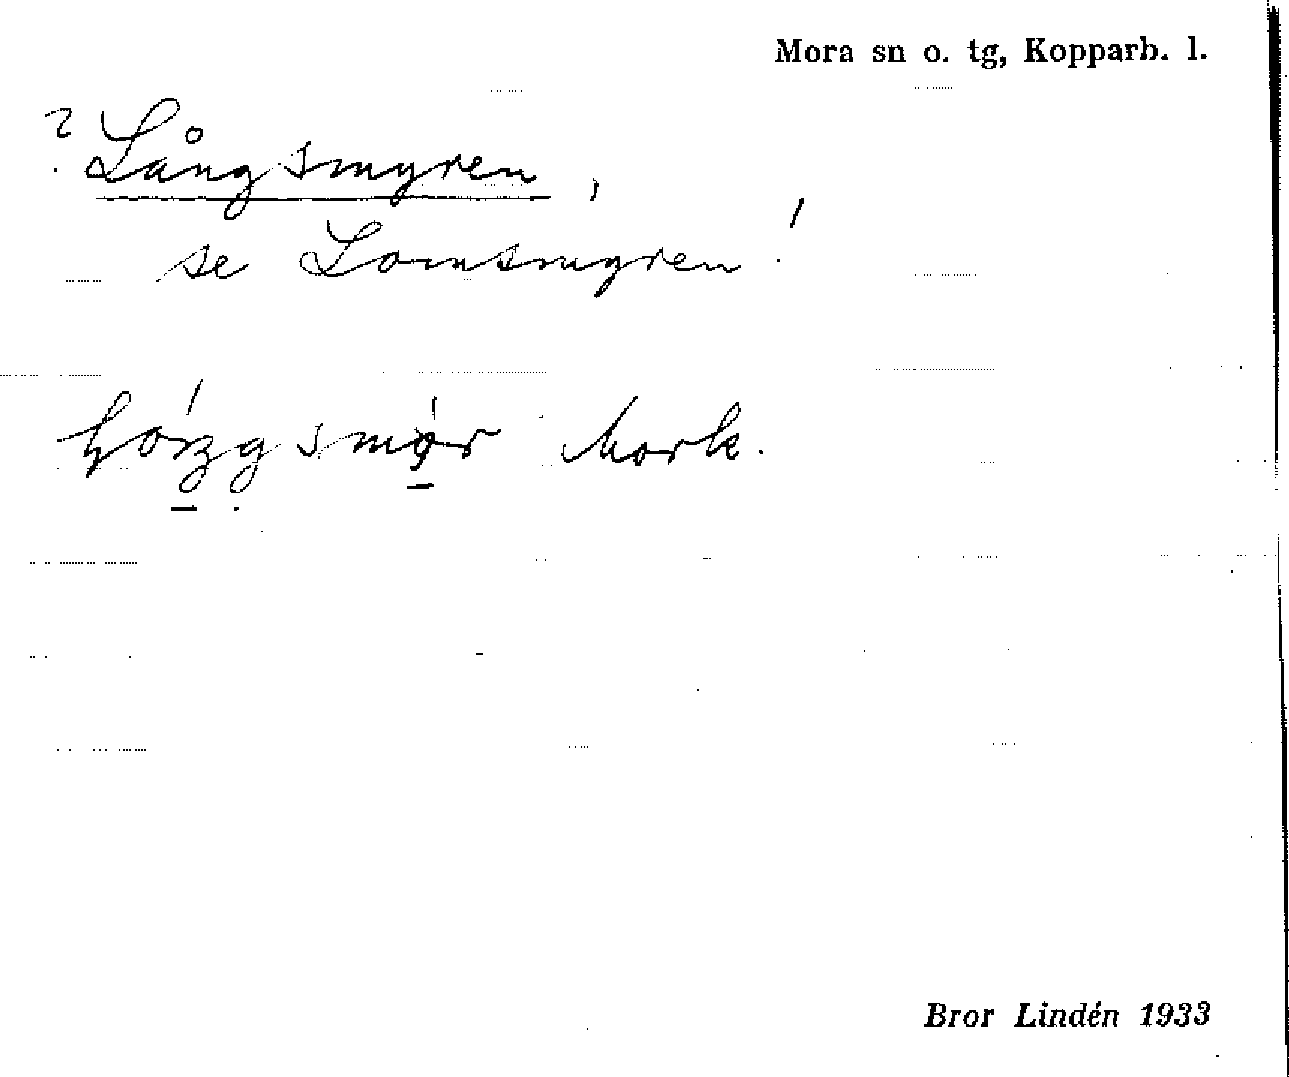 Mora sn o. tg, Kopparb. l.
? Långsmyren,
se Lomsmyren!
Mork.
Bror Lindén 1933